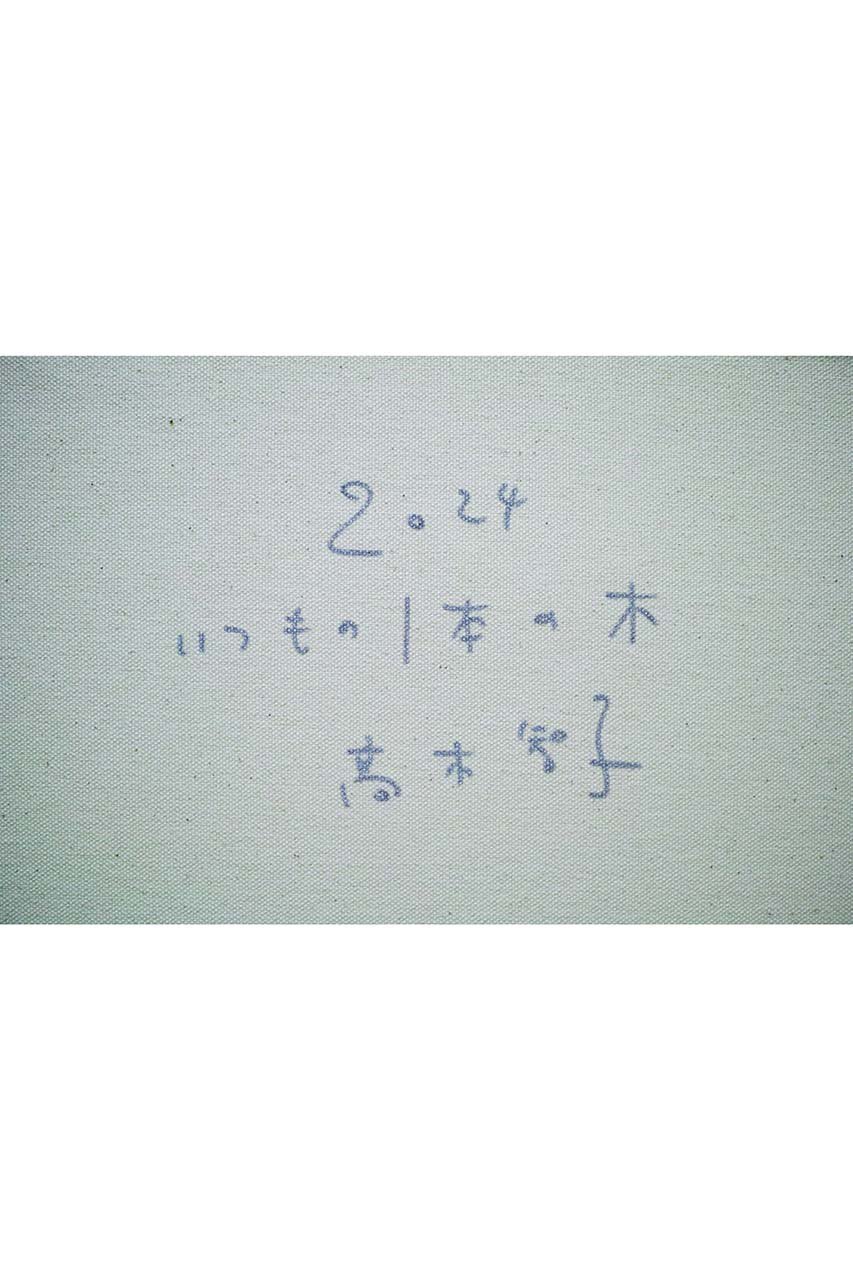 2.24
いつもの1本の木
高木智子